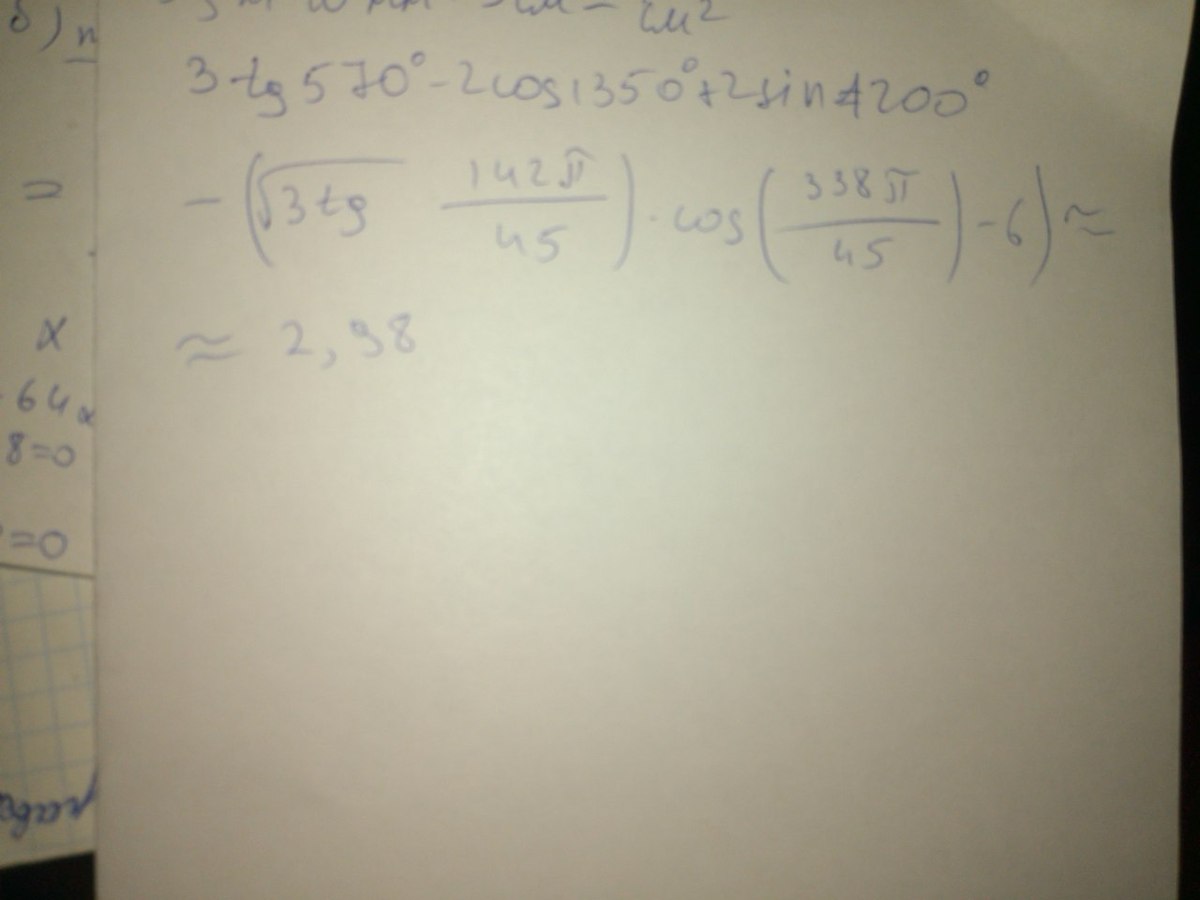 б) п
см²
3 tg 570° - 2cos1350° + 2sin1200°
=
-(√3 tg 142π/45) · cos(338π/45) - 6) ≈
x
≈ 2,98
64x
8=0
=0